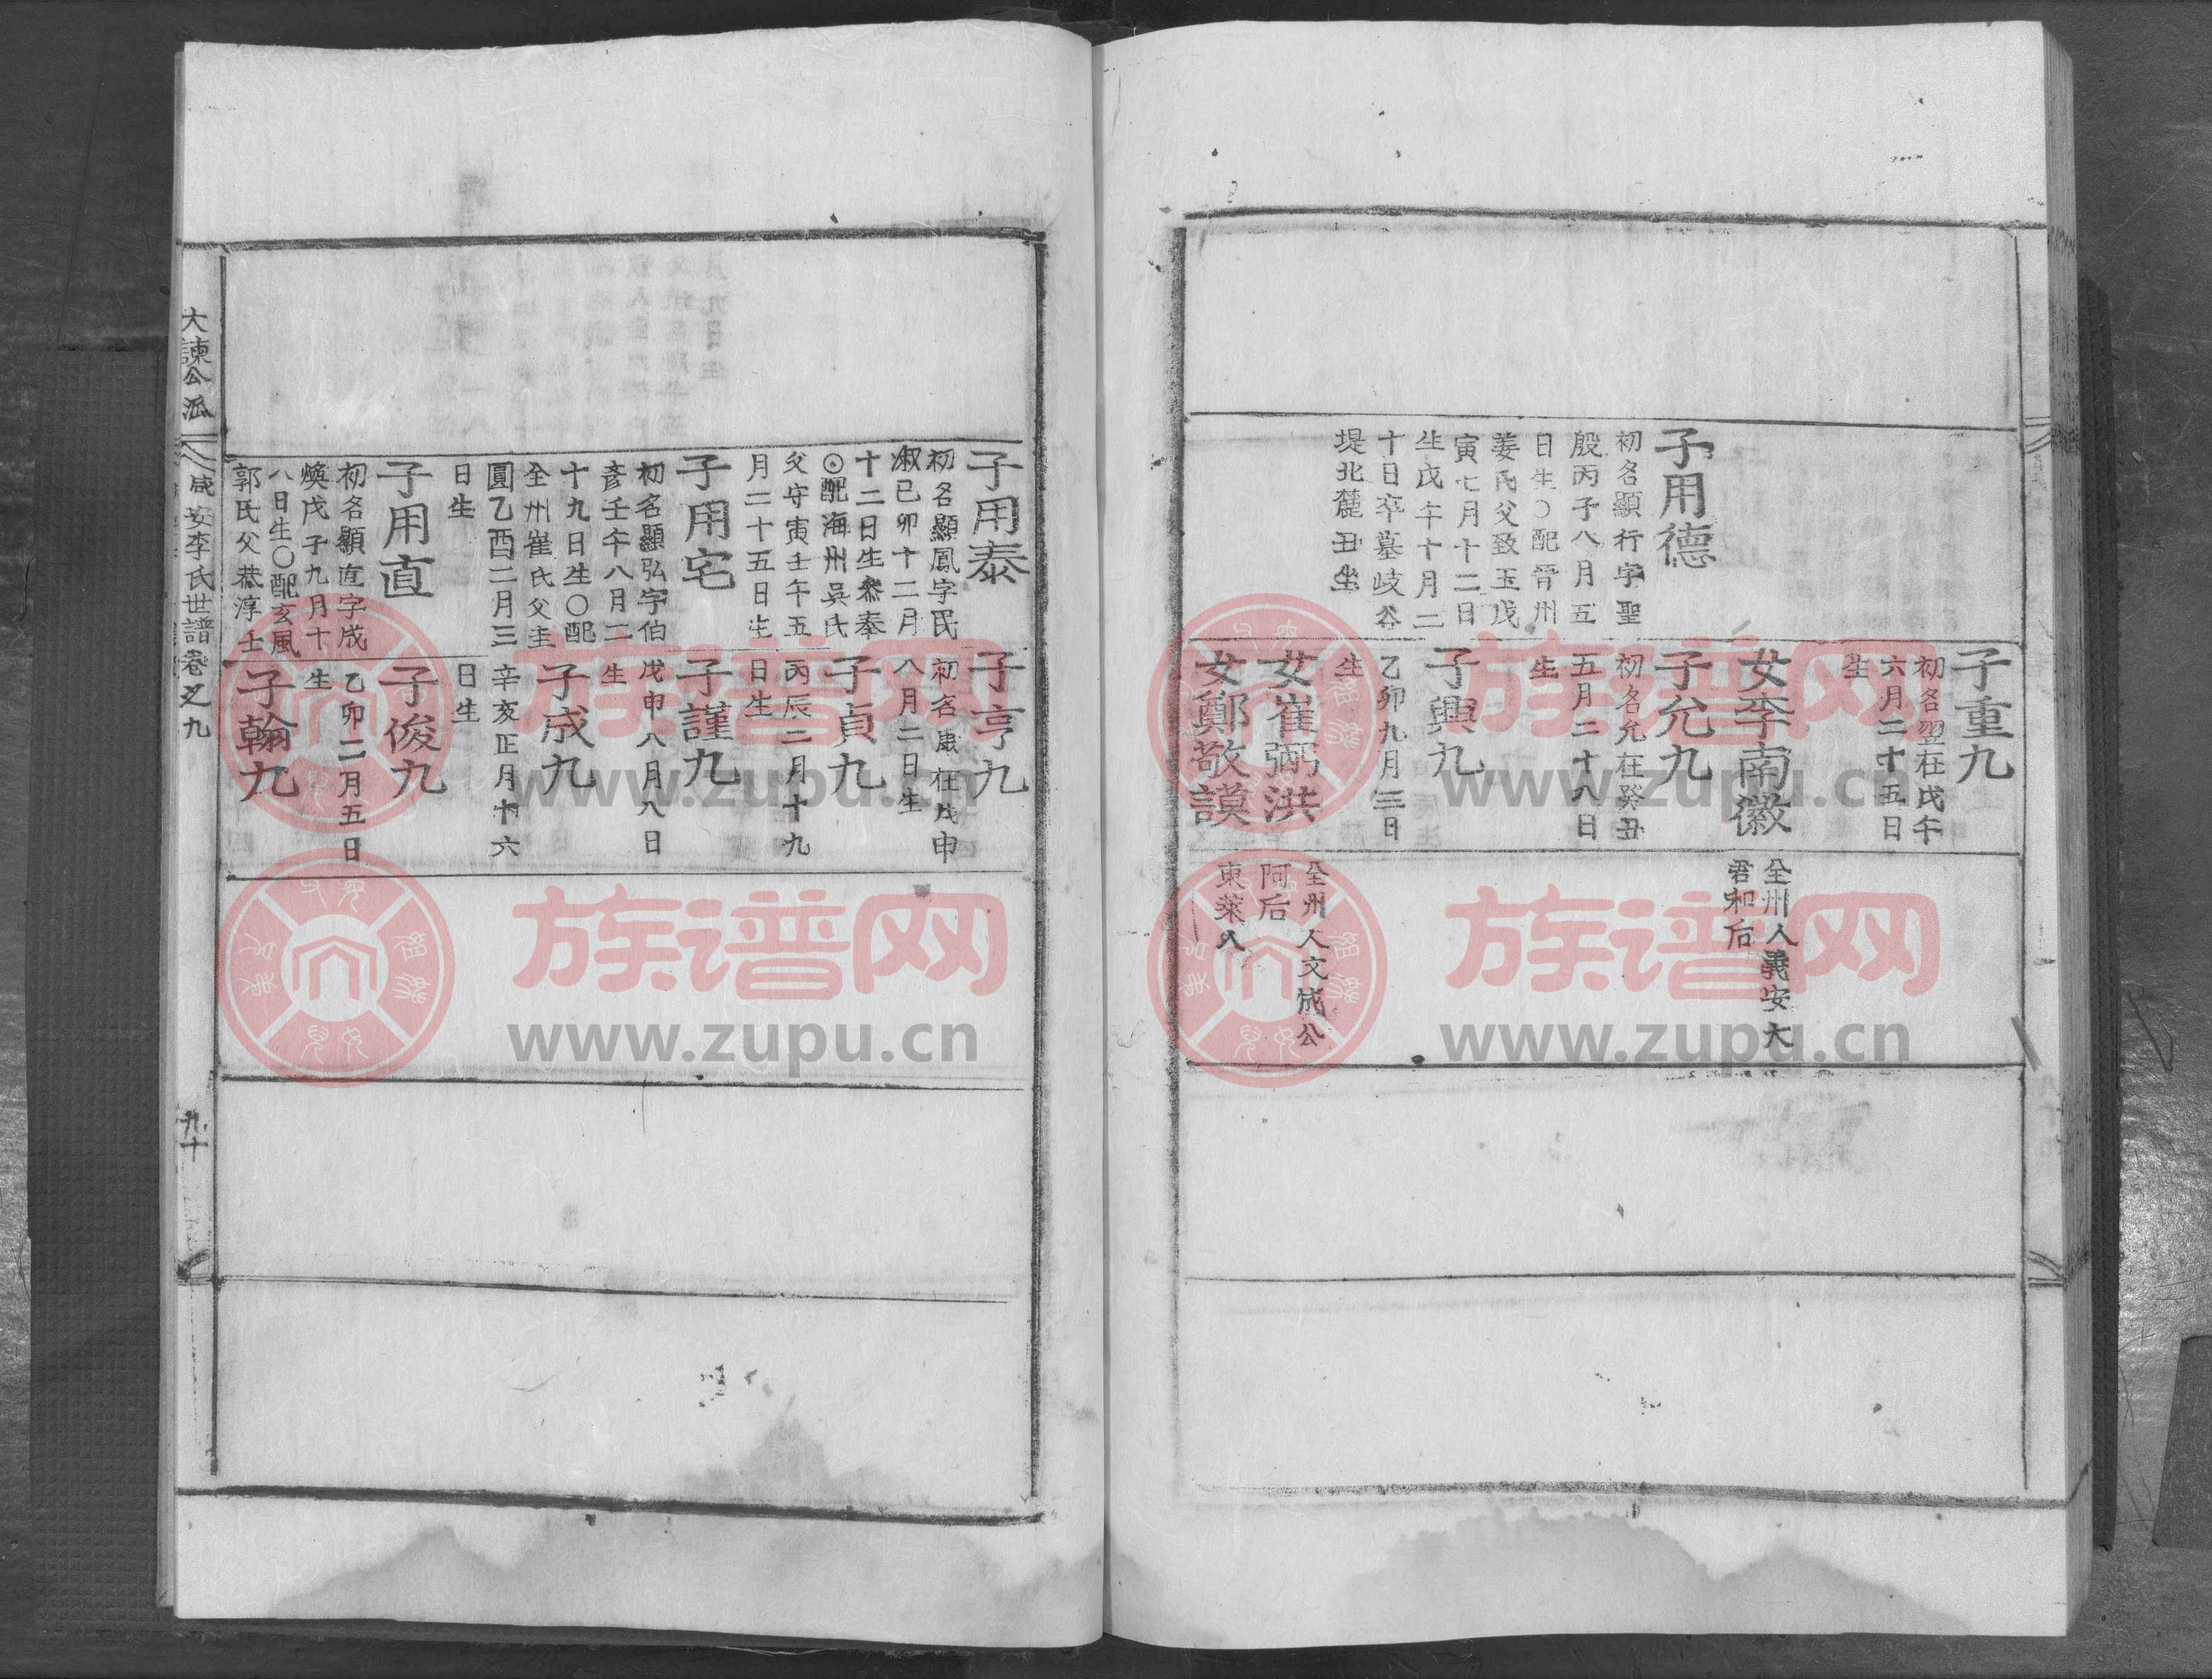 子用德
初名顯行字聖
殷丙子八月五
日生〇配晉州
姜氏父致玉戊
寅七月十二日
生戊午十月二
十日卒墓岐谷
堤北麓丑坐
子重九
初名翌在戊午
六月二十五日
生
女李南徽
子允九
初名允在癸丑
五月二十八日
生
子興九
乙卯九月三日
生
女崔弼洪
女鄭敬謨
全州人義安大
君和后
全州人文成公
阿后
東萊人
子用泰
初名顯鳳字民
叔己卯十二月
十二日生叅奉
⊙配海州吳氏
父守寅壬午五
月二十五日生
子用宅
初名顯弘字伯
彥壬午八月二
十九日生〇配
全州崔氏父圭
圓乙酉二月三
日生
子用直
初名顯直字成
煥戊子九月十
八日生〇配玄風
郭氏父基淳士
子亨九
初名康在戊申
八月二日生
子貞九
丙辰二月十九
日生
子謹九
戊申八月八日
生
子成九
辛亥正月十六
日生
子俊九
乙卯二月五日
生
子翰九
大諫公派
咸安李氏世譜卷之九
九十
族谱网
www.zupu.cn
族谱网
www.zupu.cn
族谱网
www.zupu.cn
族谱网
www.zupu.cn